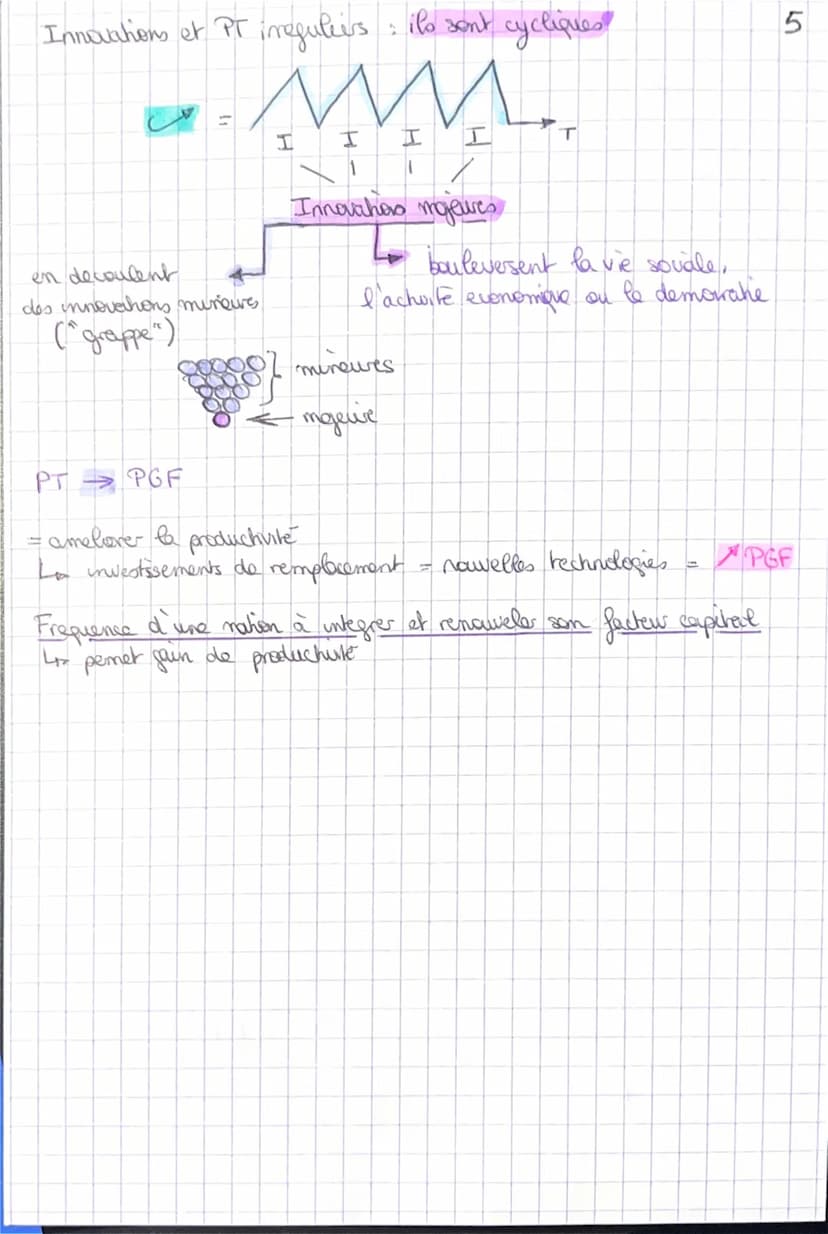 Innovations et PT irreguliers : ils sont cycliques
5
=
I I I I
T
Innovations majeures
en decoulent
des innovations mineures
("grappe")
boulevesent la vie sociale,
l'activité economique ou la democratie
mineures
majeure
PT → PGF
= ameliorer la productivité
↳ investissements de remplacement = nouvelles technologies = ↗ PGF
Frequence d'une nation à integrer et renouveler son facteur capital
↳ permet gain de productivité